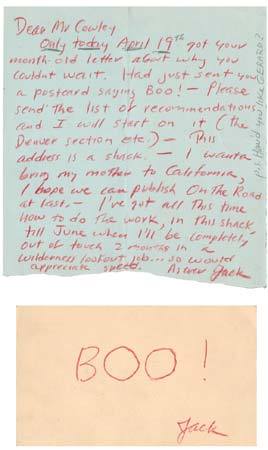 Dear Mr Cowley
Only today April 19th got your
month-old letter about why you
couldnt wait. Had just sent you
a postcard saying Boo! — Please
send the list of recommendations
and I will start on it (the
Denver section etc.) — This
address is a shack. — I wanta
bring my mother to California,
I hope we can publish On The Road
at last. — I've got all this time
now to do the work, in this shack,
till June when I'll be completely
out of touch 2 months in a
wilderness lookout job... so would
appreciate speed. As ever Jack
P.S. How'd you like GERARD?
BOO!
Jack